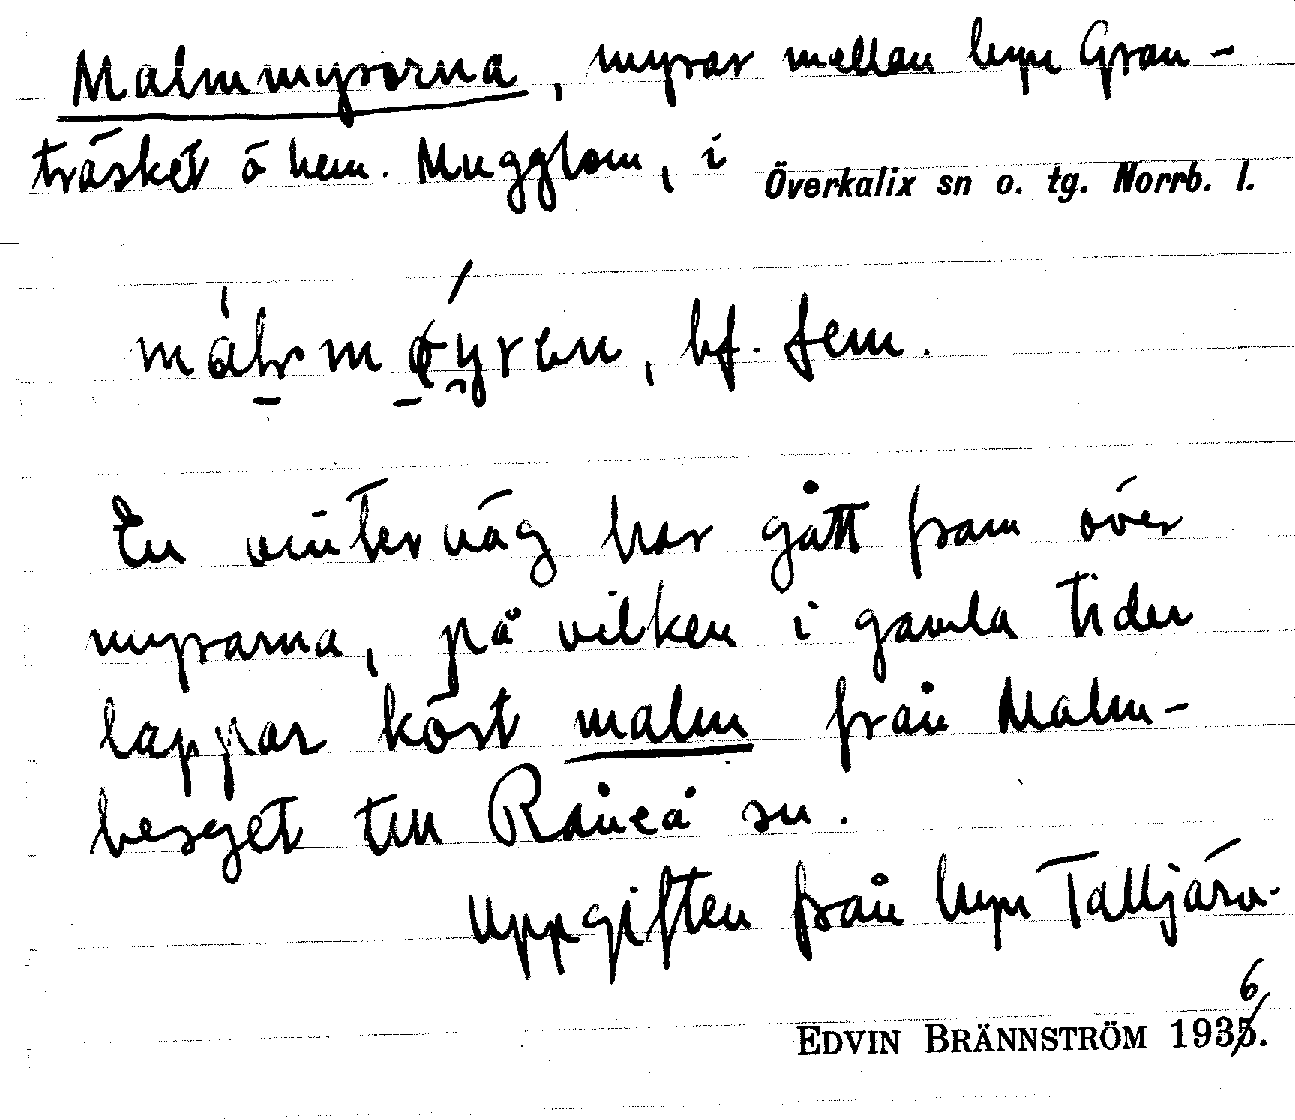 Malmmyrarna, myrar mellan byn Gran-
träsket o hem. Mugglom, i Överkalix sn o. tg. Norrb. l.
bf. fem.
En vinterväg har gått fram över
myrarna, på vilken i gamla tider
lappar kört malm från Malm-
berget till Råneå sn.
Uppgiften från byn Talljärv.
EDVIN BRÄNNSTRÖM 1936.